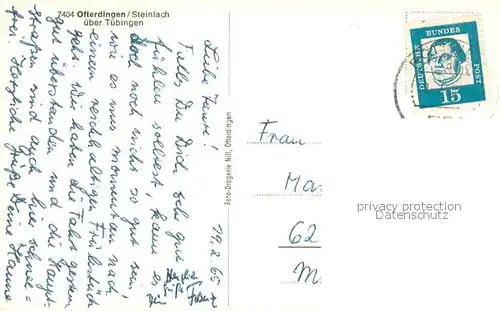 7404 Ofterdingen/Steinlach
über Tübingen
19.2.65
Liebe
Falls Du Dich sehr gut
fühlen solltest, kann es
doch noch nicht so gut sein,
wie es uns momentan nach
einem reichhaltigen Frühstück
geht. Wir haben die Fahrt gestern
gut überstanden und die Haupt-
straßen sind auch hier schnee-
frei. Herzliche Grüße Deine Hanne
Herzliche
Grüße
Foto-Drogerie Nill, Ofterdingen
DEUTSCHE
BUNDES
POST
15
Frau
Ma
62
privacy protection
Datenschutz